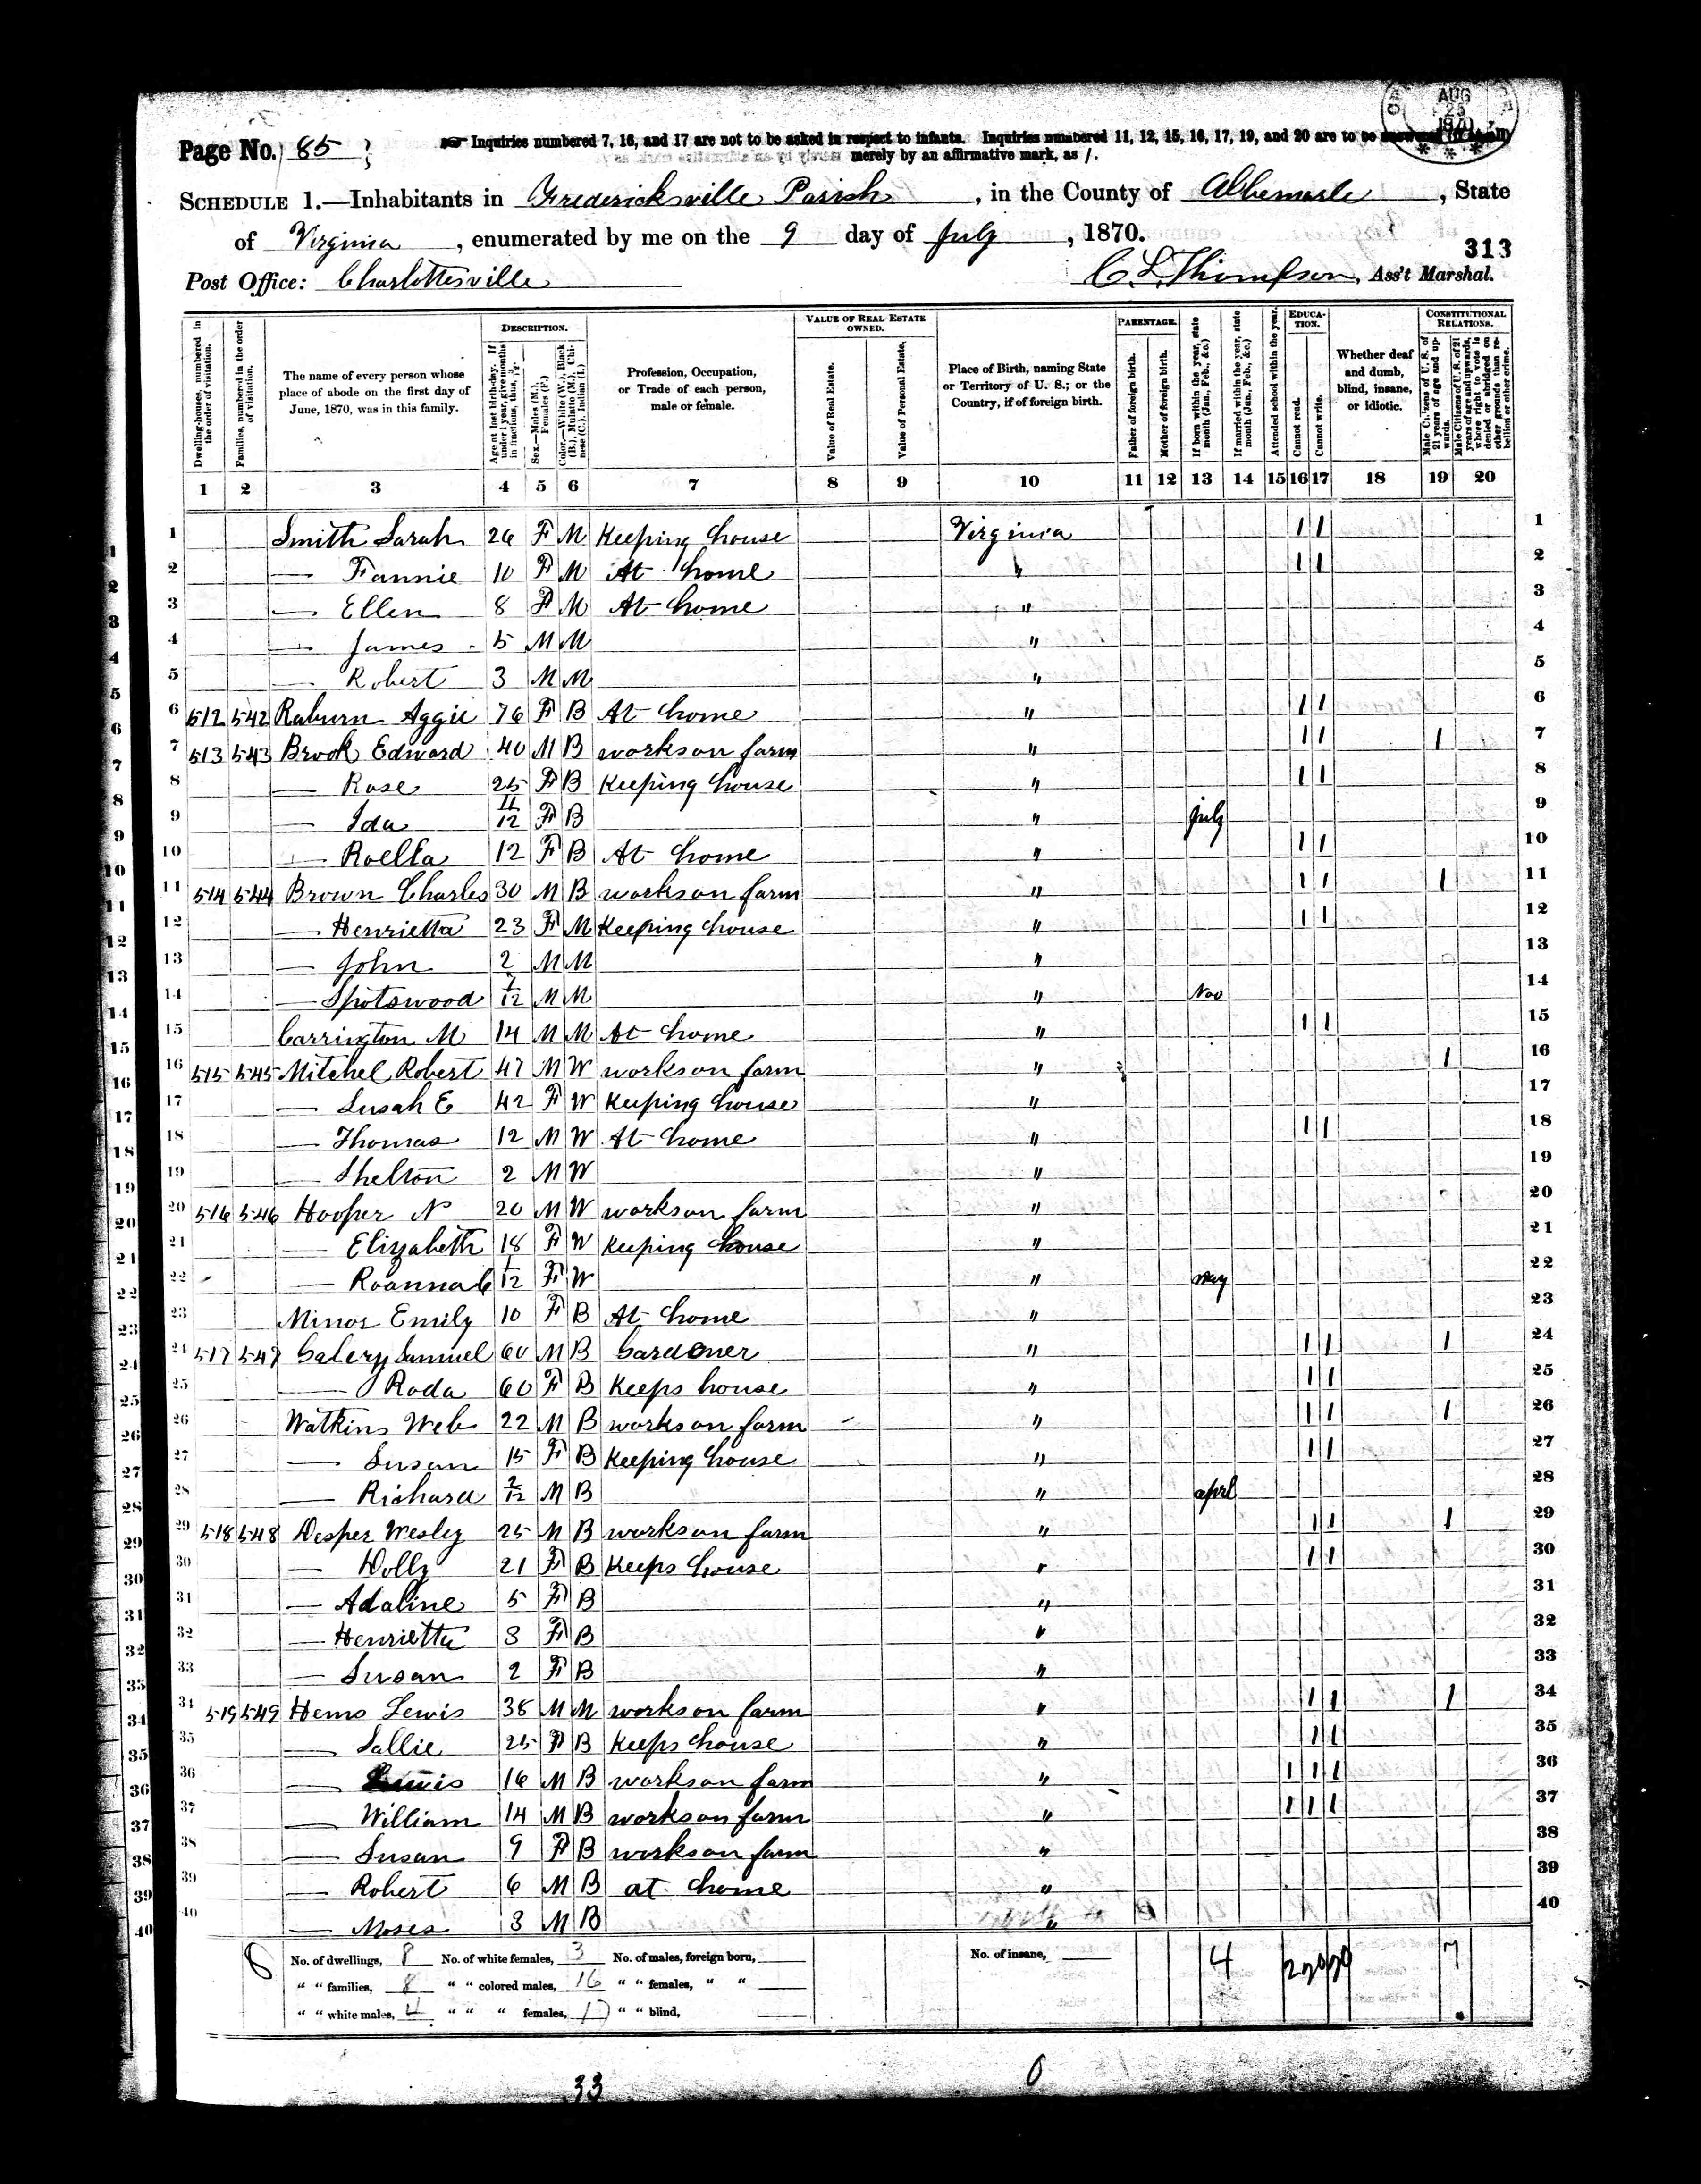 AUG 25 1870
Page No. 85
Inquiries numbered 7, 16, and 17 are not to be asked in respect to infants. Inquiries numbered 11, 12, 15, 16, 17, 19, and 20 are to be answered (if at all)
merely by an affirmative mark, as /.
SCHEDULE 1.—Inhabitants in Fredericksville Parish, in the County of Albemarle, State
of Virginia, enumerated by me on the 9 day of July, 1870.
313
Post Office: Charlottesville
C L Thompson, Ass't Marshal.
Dwelling-houses, numbered in the order of visitation.
Families, numbered in the order of visitation.
The name of every person whose place of abode on the first day of June, 1870, was in this family.
DESCRIPTION.
Age at last birth-day. If under 1 year, give months in fractions, thus, 3/12.
Sex.—Males (M.), Females (F.)
Color.—White (W.), Black (B.), Mulatto (M.), Chinese (C.), Indian (I.)
Profession, Occupation, or Trade of each person, male or female.
VALUE OF REAL ESTATE OWNED.
Value of Real Estate.
Value of Personal Estate.
Place of Birth, naming State or Territory of U. S.; or the Country, if of foreign birth.
PARENTAGE.
Father of foreign birth.
Mother of foreign birth.
If born within the year, state month (Jan., Feb., &c.)
If married within the year, state month (Jan., Feb., &c.)
Attended school within the year.
EDUCATION.
Cannot read.
Cannot write.
Whether deaf and dumb, blind, insane, or idiotic.
CONSTITUTIONAL RELATIONS.
Male Citizens of U. S. of 21 years of age and upwards.
Male Citizens of U. S. of 21 years of age and upwards, whose right to vote is denied or abridged on other grounds than rebellion or other crime.
1 2 3 4 5 6 7 8 9 10 11 12 13 14 15 16 17 18 19 20
1 Smith Sarah 26 F M Keeping house Virginia 1 1 1
2 — Fannie 10 F M At home " 1 1 2
3 — Ellen 8 F M At home " 3
4 — James 5 M M " 4
5 — Robert 3 M M " 5
6 512 542 Raburn Aggie 76 F B At home " 1 1 6
7 513 543 Brook Edward 40 M B works on farm " 1 1 1 7
8 — Rose 25 F B Keeping house " 1 1 8
9 — Ida 11/12 F B " July 9
10 — Roella 12 F B At home " 1 1 10
11 514 544 Brown Charles 30 M B works on farm " 1 1 1 11
12 — Henrietta 23 F M Keeping house " 1 1 12
13 — John 2 M M " 13
14 — Spotswood 7/12 M M " Nov 14
15 Carrington M 14 M M At home " 1 1 15
16 515 545 Mitchel Robert 47 M W works on farm " 1 16
17 — Susah E 42 F W Keeping house " 17
18 — Thomas 12 M W At home " 1 1 18
19 — Shelton 2 M W " 19
20 516 546 Hooper N 20 M W works on farm " 20
21 — Elizabeth 18 F W Keeping house " 21
22 — Roanna C 1/12 F W " May 22
23 Minor Emily 10 F B At home " 23
24 517 547 Calery Samuel 60 M B Gardener " 1 1 1 24
25 — Roda 60 F B Keeps house " 1 1 25
26 Watkins Web 22 M B works on farm " 1 1 1 26
27 — Susan 15 F B Keeping house " 1 1 27
28 — Richard 2/12 M B " aprl 28
29 518 548 Desper Wesley 25 M B works on farm " 1 1 1 29
30 — Dolly 21 F B Keeps house " 1 1 30
31 — Adaline 5 F B " 31
32 — Henrietta 3 F B " 32
33 — Susan 2 F B " 33
34 519 549 Hems Lewis 38 M M works on farm " 1 1 1 34
35 — Sallie 25 F B Keeps house " 1 1 35
36 — Lewis 16 M B works on farm " 1 1 1 36
37 — William 14 M B works on farm " 1 1 1 37
38 — Susan 9 F B works on farm " 38
39 — Robert 6 M B at home " 39
40 — Moses 3 M B " 40
8 No. of dwellings, 8 No. of white females, 3 No. of males, foreign born, No. of insane, 4 2 20 20 7
" " families, 8 " " colored males, 16 " " females, " "
" " white males, 4 " " " females, 17 " " blind,
33 0